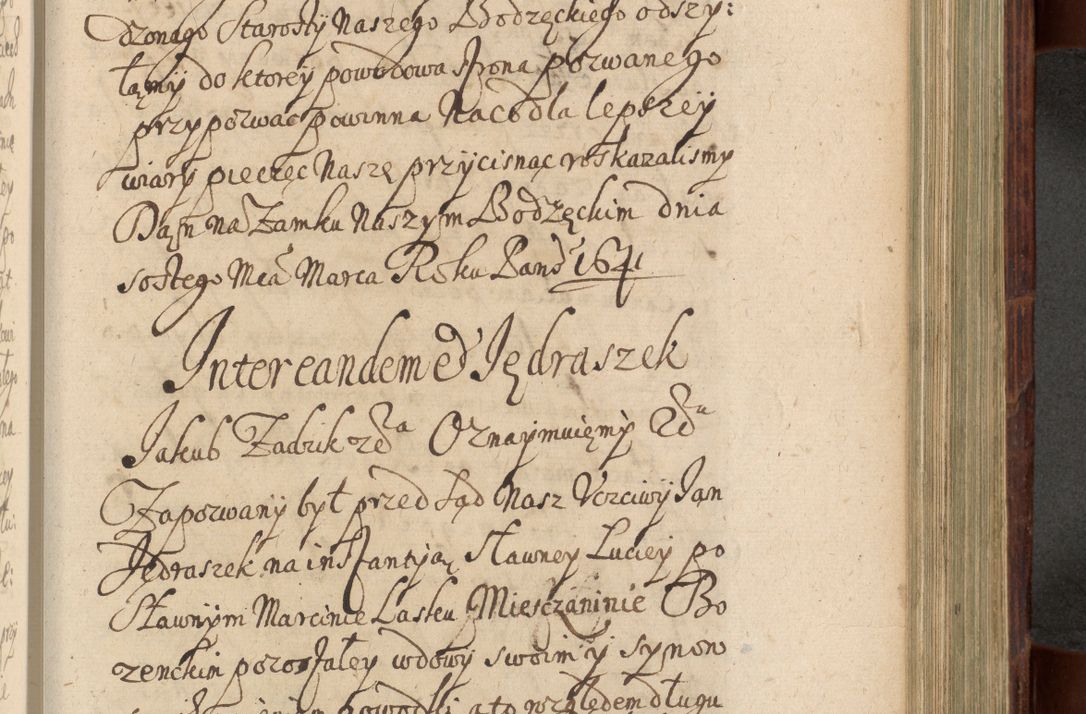 dzonago Starosty Naszego Bodzęckiego odszy:
łamy do ktorey powodowa strona pozwanego
przypozwac powinna Naco dla lepszey
wiary pieczęc Naszę przycisnąc roskazalismy
Dan na Zamku Naszym Bodzęckim dnia
sostego Mca Marca Roku Pans 1641
Inter eandem ed Jędraszek
Jakub Zadzik zda Oznaymuięmy Eda
Zapozwany był przed sąd Nasz Vczciwy Jan
Jędraszek na instantyą Sławney Luciey po
Sławnym Marcinie Lasku Miesczaninie Bo
zenckim pozostałey wdowy swoim y synow
powodki a to względem długu